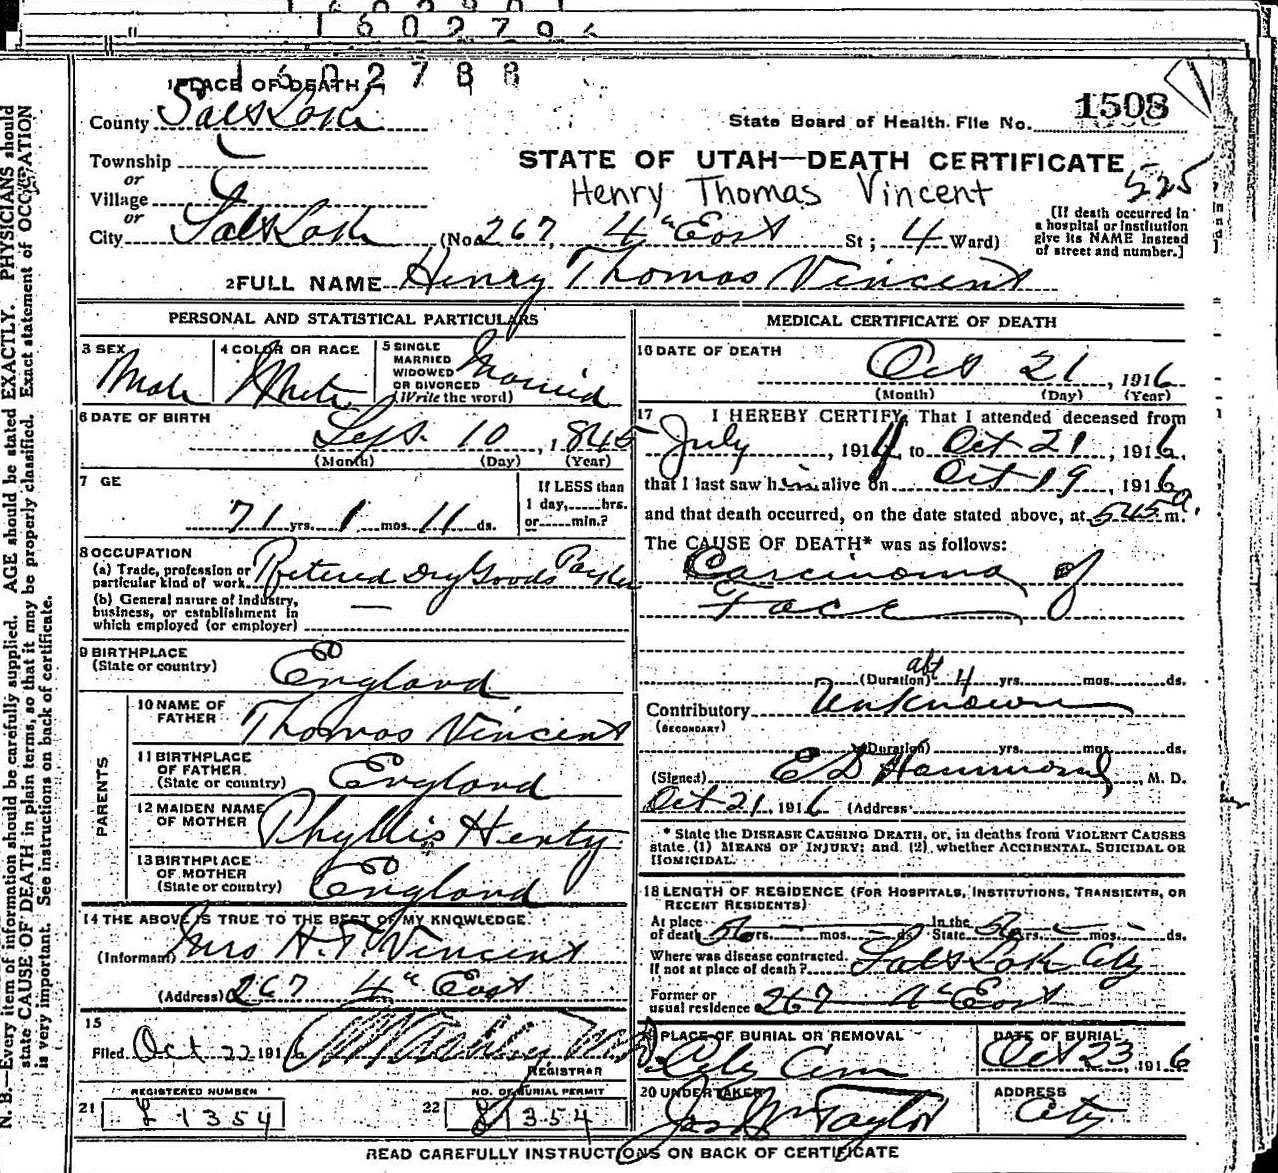 1602794
1602788
1 PLACE OF DEATH
County Salt Lake
Township
or
Village
or
City Salt Lake (No. 267, 4th East St; 4 Ward)
State Board of Health File No. 1508
STATE OF UTAH—DEATH CERTIFICATE
525
Henry Thomas Vincent
[If death occurred in a hospital or institution give its NAME instead of street and number.]
2 FULL NAME Henry Thomas Vincent
PERSONAL AND STATISTICAL PARTICULARS
3 SEX Male
4 COLOR OR RACE White
5 SINGLE MARRIED WIDOWED OR DIVORCED (Write the word) Married
6 DATE OF BIRTH
Sept. 10, 1845
(Month) (Day) (Year)
7 GE
71 yrs. 1 mos. 11 ds.
If LESS than 1 day, hrs. or min.?
8 OCCUPATION
(a) Trade, profession or particular kind of work Retired Dry Goods
(b) General nature of industry, business, or establishment in which employed (or employer) —
9 BIRTHPLACE
(State or country) England
PARENTS
10 NAME OF FATHER Thomas Vincent
11 BIRTHPLACE OF FATHER (State or country) England
12 MAIDEN NAME OF MOTHER Phyllis Henty
13 BIRTHPLACE OF MOTHER (State or country) England
14 THE ABOVE IS TRUE TO THE BEST OF MY KNOWLEDGE
(Informant) Mrs H.T. Vincent
(Address) 267 4th East
15
Filed Oct 22 1916
REGISTRAR
REGISTERED NUMBER
21 £1354
NO. OF BURIAL PERMIT
22 £1354
MEDICAL CERTIFICATE OF DEATH
16 DATE OF DEATH
Oct 21, 1916
(Month) (Day) (Year)
17 I HEREBY CERTIFY, That I attended deceased from
July, 1914, to Oct 21, 1916,
that I last saw him alive on Oct 19, 1916
and that death occurred, on the date stated above, at 545 a. m.
The CAUSE OF DEATH* was as follows:
Carcinoma of
Face
(Duration) abt 4 yrs. mos. ds.
Contributory Unknown
(SECONDARY)
(Duration) yrs. mos. ds.
(Signed) E D Hammond, M. D.
Oct 21, 1916 (Address)
* State the DISEASE CAUSING DEATH, or, in deaths from VIOLENT CAUSES
state (1) MEANS OF INJURY; and (2), whether ACCIDENTAL, SUICIDAL OR
HOMICIDAL.
18 LENGTH OF RESIDENCE (FOR HOSPITALS, INSTITUTIONS, TRANSIENTS, OR
RECENT RESIDENTS)
At place of death 56 yrs. — mos. — ds. In the State 56 yrs. — mos. — ds.
Where was disease contracted. If not at place of death? Salt Lake City
Former or usual residence 267 4th East
PLACE OF BURIAL OR REMOVAL City Cem
DATE OF BURIAL Oct 23, 1916
20 UNDERTAKER Jos Wm Taylor
ADDRESS City
READ CAREFULLY INSTRUCTIONS ON BACK OF CERTIFICATE
N. B.—Every item of information should be carefully supplied. AGE should be stated EXACTLY. PHYSICIANS should
state CAUSE OF DEATH in plain terms, so that it may be properly classified. Exact statement of OCCUPATION
is very important. See instructions on back of certificate.